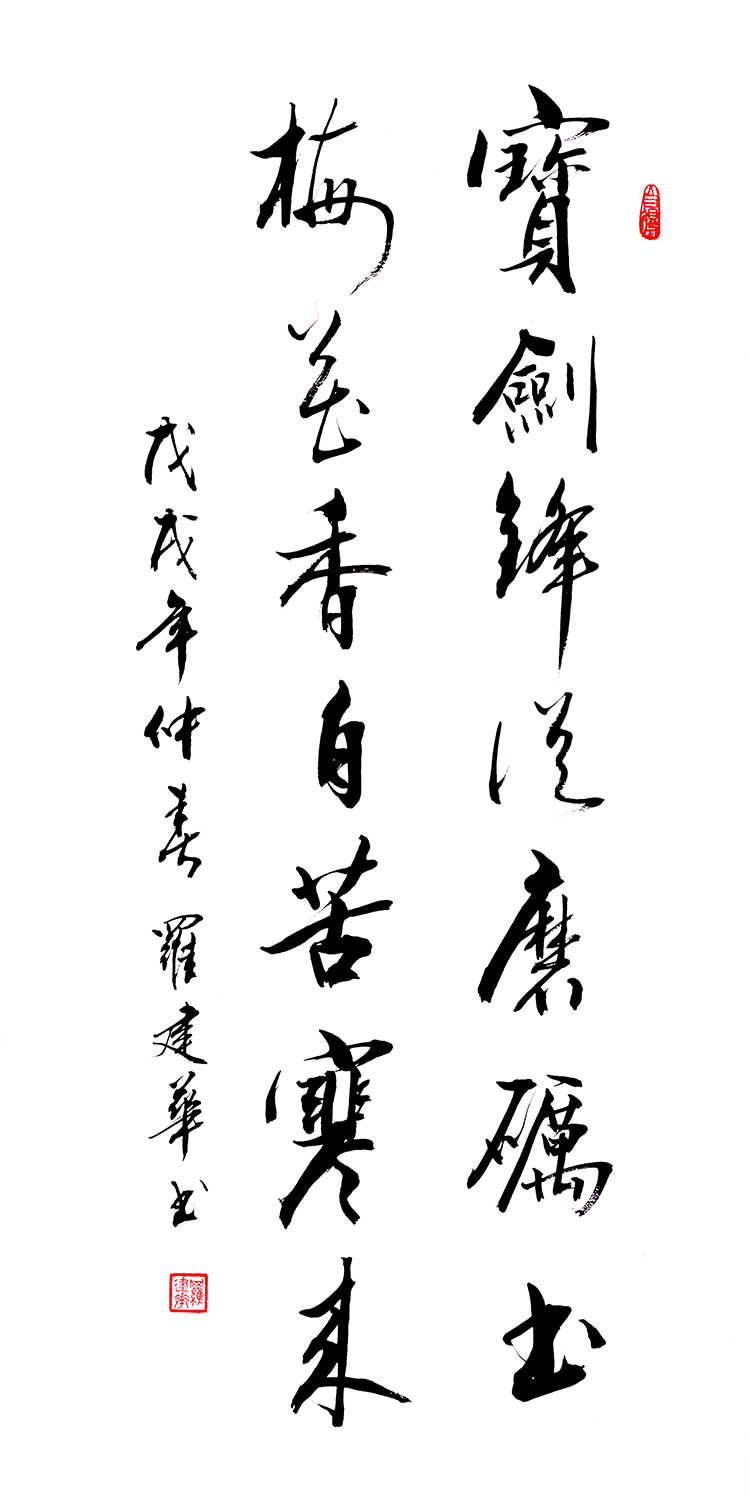 寶劍鋒從磨礪出
梅花香自苦寒來
戊戌年仲春 羅建華书
羅建華